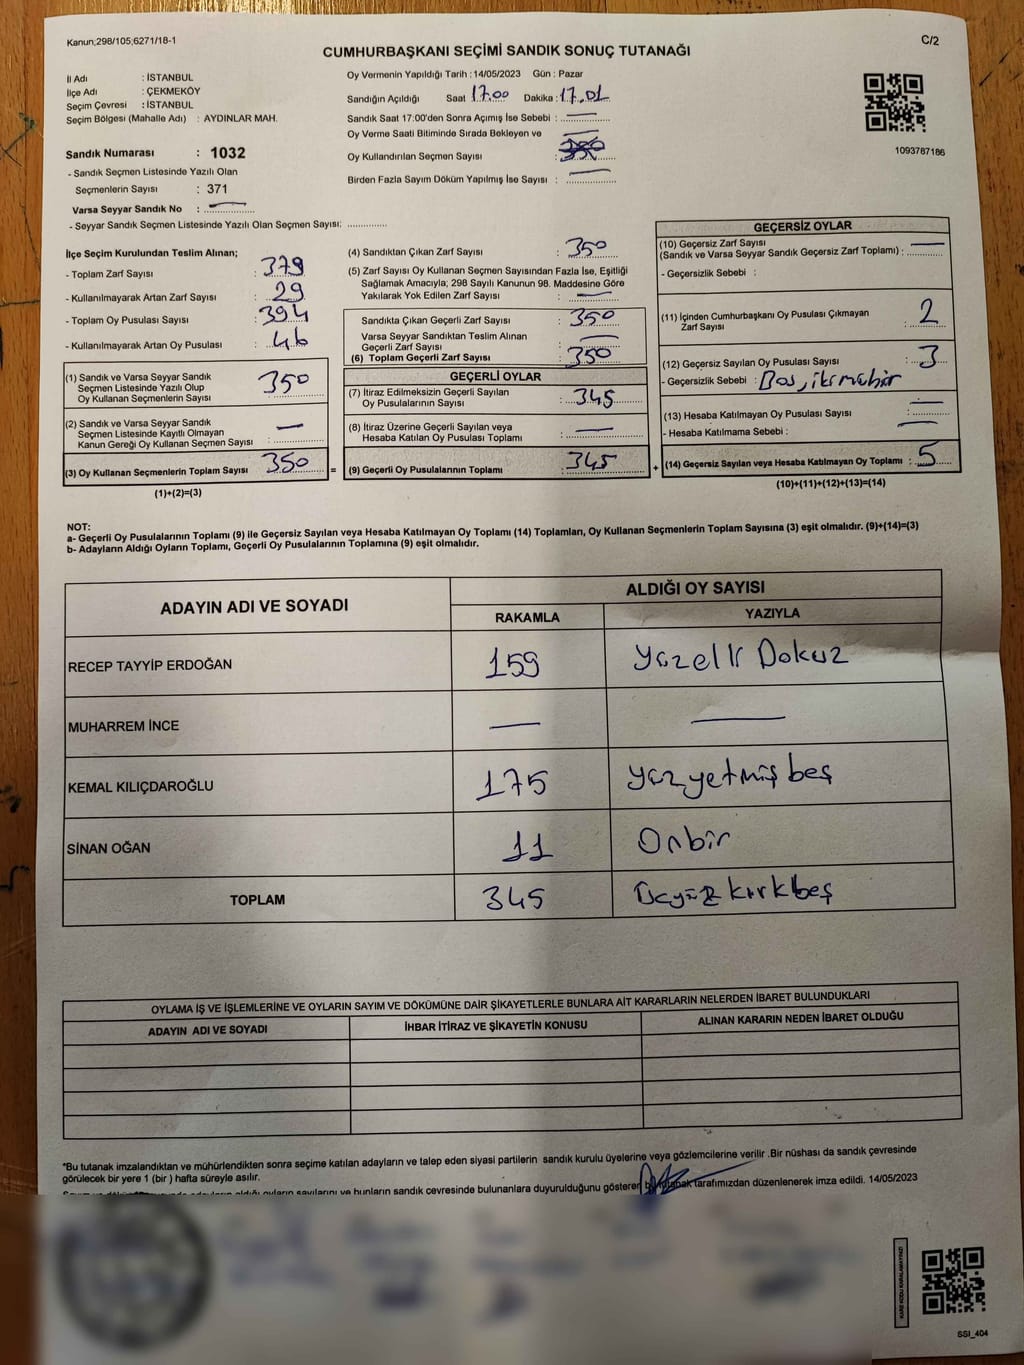 Kanun;298/105;6271/18-1
C/2
CUMHURBAŞKANI SEÇİMİ SANDIK SONUÇ TUTANAĞI
İl Adı : İSTANBUL
İlçe Adı : ÇEKMEKÖY
Seçim Çevresi : İSTANBUL
Seçim Bölgesi (Mahalle Adı) : AYDINLAR MAH.
Sandık Numarası : 1032
- Sandık Seçmen Listesinde Yazılı Olan
Seçmenlerin Sayısı : 371
Varsa Seyyar Sandık No : —
- Seyyar Sandık Seçmen Listesinde Yazılı Olan Seçmen Sayısı:
Oy Vermenin Yapıldığı Tarih : 14/05/2023 Gün : Pazar
Sandığın Açıldığı Saat 17.00 Dakika : 17.01
Sandık Saat 17:00'den Sonra Açımış İse Sebebi : —
Oy Verme Saati Bitiminde Sırada Bekleyen ve —
Oy Kullandırılan Seçmen Sayısı :
Birden Fazla Sayım Döküm Yapılmış İse Sayısı : —
1093787186
İlçe Seçim Kurulundan Teslim Alınan;
- Toplam Zarf Sayısı : 379
- Kullanılmayarak Artan Zarf Sayısı : 29
- Toplam Oy Pusulası Sayısı : 394
- Kullanılmayarak Artan Oy Pusulası : 46
(1) Sandık ve Varsa Seyyar Sandık
Seçmen Listesinde Yazılı Olup
Oy Kullanan Seçmenlerin Sayısı : 350
(2) Sandık ve Varsa Seyyar Sandık
Seçmen Listesinde Kayıtlı Olmayan
Kanun Gereği Oy Kullanan Seçmen Sayısı : —
(3) Oy Kullanan Seçmenlerin Toplam Sayısı 350 =
(1)+(2)=(3)
(4) Sandıktan Çıkan Zarf Sayısı : 350
(5) Zarf Sayısı Oy Kullanan Seçmen Sayısından Fazla İse, Eşitliği
Sağlamak Amacıyla; 298 Sayılı Kanunun 98. Maddesine Göre
Yakılarak Yok Edilen Zarf Sayısı : —
Sandıkta Çıkan Geçerli Zarf Sayısı : 350
Varsa Seyyar Sandıktan Teslim Alınan
Geçerli Zarf Sayısı : —
(6) Toplam Geçerli Zarf Sayısı : 350
GEÇERLİ OYLAR
(7) İtiraz Edilmeksizin Geçerli Sayılan
Oy Pusulalarının Sayısı : 345
(8) İtiraz Üzerine Geçerli Sayılan veya
Hesaba Katılan Oy Pusulası Toplamı : —
(9) Geçerli Oy Pusulalarının Toplamı : 345 +
GEÇERSİZ OYLAR
(10) Geçersiz Zarf Sayısı
(Sandık ve Varsa Seyyar Sandık Geçersiz Zarf Toplamı) : —
- Geçersizlik Sebebi :
(11) İçinden Cumhurbaşkanı Oy Pusulası Çıkmayan
Zarf Sayısı : 2
(12) Geçersiz Sayılan Oy Pusulası Sayısı : 3
- Geçersizlik Sebebi : Boş, iki mühür
(13) Hesaba Katılmayan Oy Pusulası Sayısı : —
- Hesaba Katılmama Sebebi : —
(14) Geçersiz Sayılan veya Hesaba Katılmayan Oy Toplamı : 5
(10)+(11)+(12)+(13)=(14)
NOT:
a- Geçerli Oy Pusulalarının Toplamı (9) ile Geçersiz Sayılan veya Hesaba Katılmayan Oy Toplamı (14) Toplamları, Oy Kullanan Seçmenlerin Toplam Sayısına (3) eşit olmalıdır. (9)+(14)=(3)
b- Adayların Aldığı Oyların Toplamı, Geçerli Oy Pusulalarının Toplamına (9) eşit olmalıdır.
ADAYIN ADI VE SOYADI
ALDIĞI OY SAYISI
RAKAMLA YAZIYLA
RECEP TAYYİP ERDOĞAN 159 Yüzelli Dokuz
MUHARREM İNCE — —
KEMAL KILIÇDAROĞLU 175 Yüzyetmiş beş
SİNAN OĞAN 11 Onbir
TOPLAM 345 Üçyüz kırkbeş
OYLAMA İŞ VE İŞLEMLERİNE VE OYLARIN SAYIM VE DÖKÜMÜNE DAİR ŞİKAYETLERLE BUNLARA AİT KARARLARIN NELERDEN İBARET BULUNDUKLARI
ADAYIN ADI VE SOYADI İHBAR İTİRAZ VE ŞİKAYETİN KONUSU ALINAN KARARIN NEDEN İBARET OLDUĞU
*Bu tutanak imzalandıktan ve mühürlendikten sonra seçime katılan adayların ve talep eden siyasi partilerin sandık kurulu üyelerine veya gözlemcilerine verilir .Bir nüshası da sandık çevresinde
görülecek bir yere 1 (bir ) hafta süreyle asılır.
oyların sayılarını ve bunların sandık çevresinde bulunanlara duyurulduğunu gösteren bu tutanak tarafımızdan düzenlenerek imza edildi. 14/05/2023
KARE KODU KARALAMAYINIZ!
SSI_404